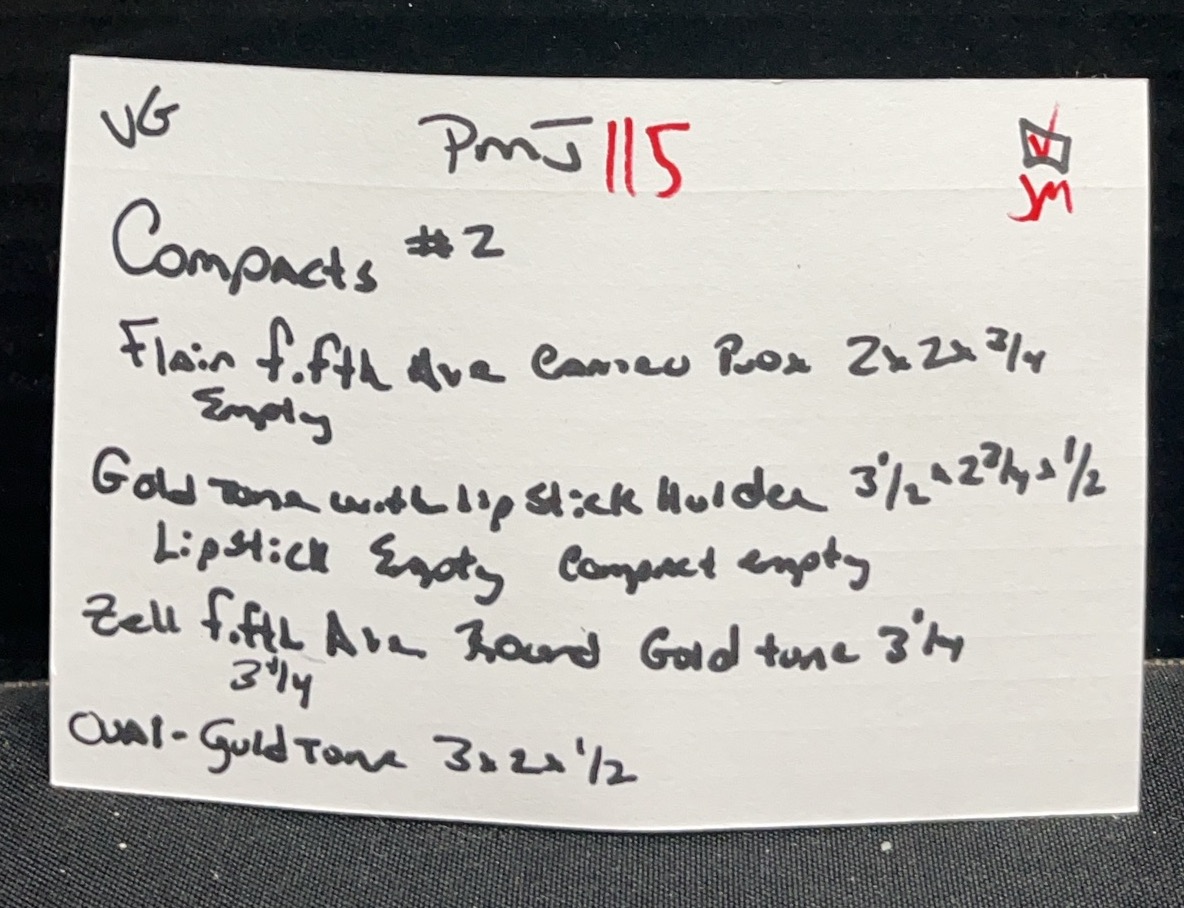 VG PmJ 115
JM
Compacts #2
Flain fifth Ave Cameo Box 2x2x3/4
Empty
Gold Tone with lipstick Holder 3 1/2 x 2 3/4 x 1/2
Lipstick Empty Compact empty
Zell fifth Ave Round Gold tone 3 1/4
3 1/4
Oval - Gold Tone 3x2x1/2